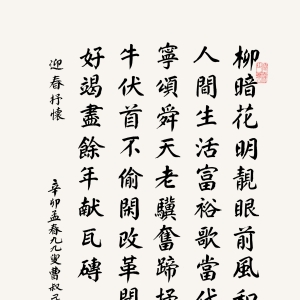 柳暗花明靚眼前風和
人間生活富裕歌當代
寧頌舜天老驥奮蹄
牛伏首不偷閑改革開
好竭盡餘年献瓦磚
迎春抒懷
辛卯孟春九九叟曹叔